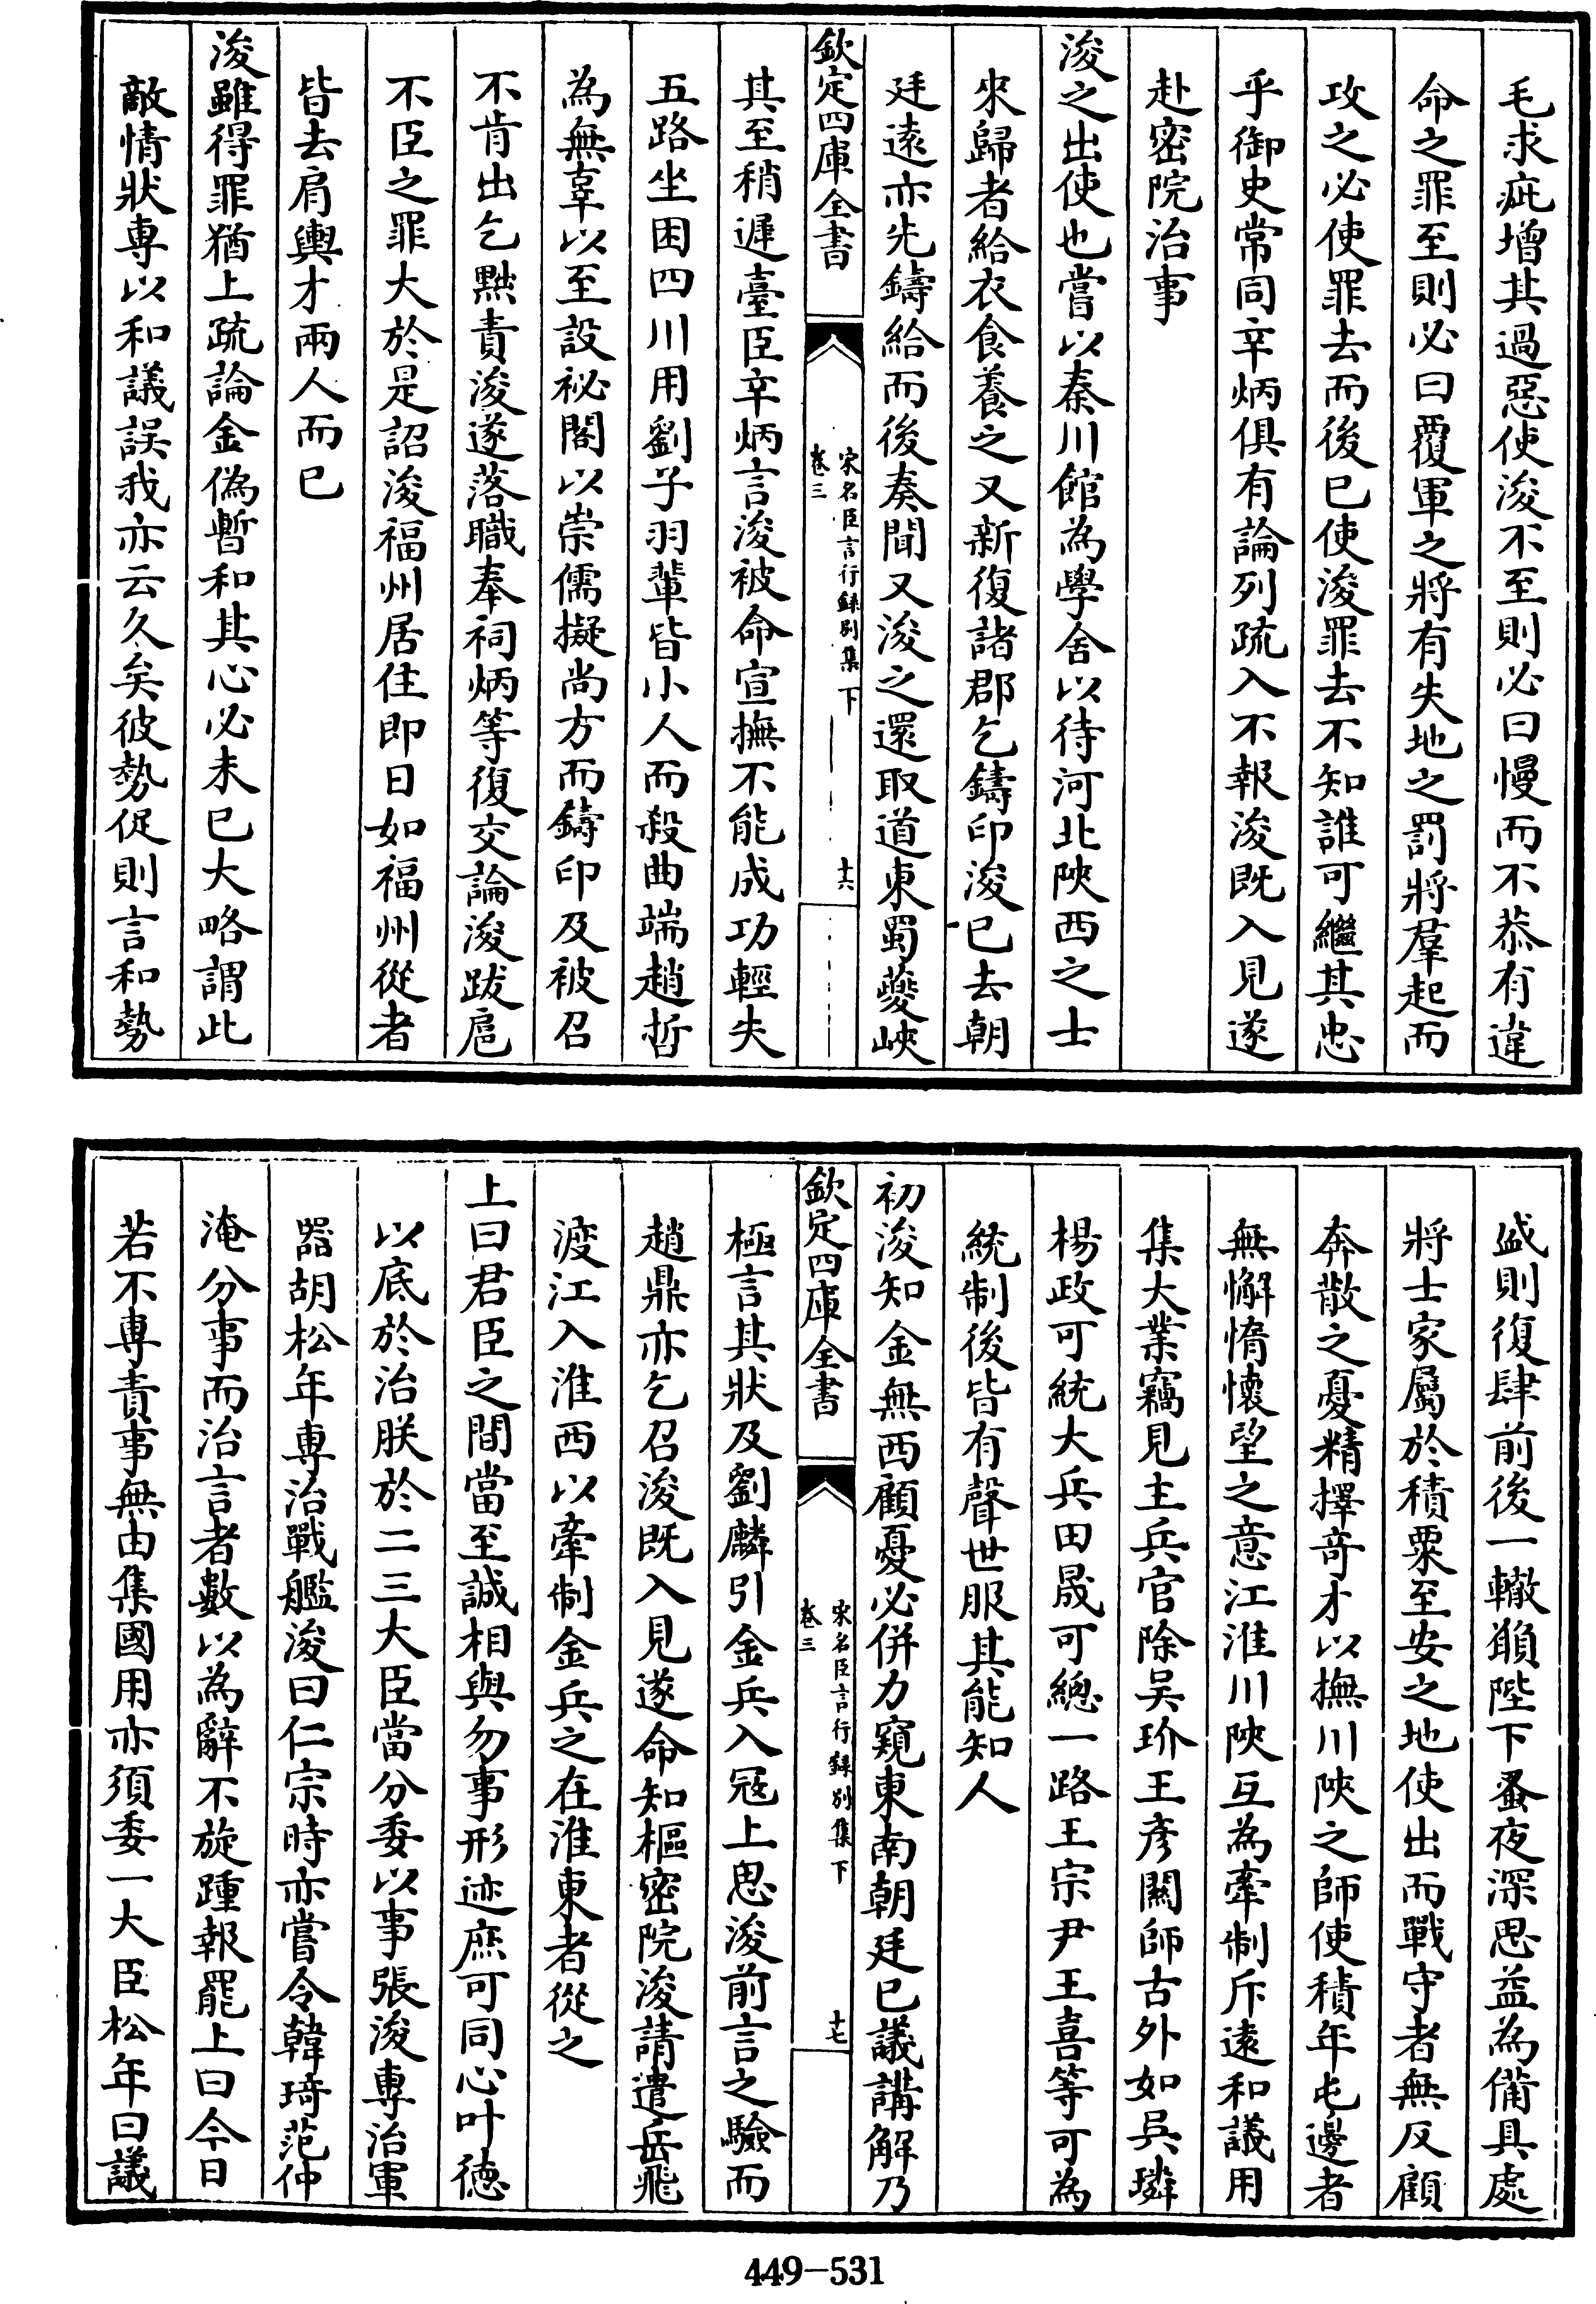 毛求疵增其過惡使浚不至則必曰慢而不恭有違
命之罪至則必曰覆軍之將有失地之罰將羣起而
攻之必使罪去而後已使浚罪去不知誰可繼其忠
乎御史常同辛炳俱有論列疏入不報浚既入見遂
赴密院治事
浚之出使也嘗以秦川館為學舍以待河北陝西之士
來歸者給衣食養之又新復諸郡乞鑄印浚已去朝
廷遠亦先鑄給而後奏聞又浚之還取道東蜀夔峽
欽定四庫全書
宋名臣言行録别集下
卷三
十六
其至稍遲臺臣辛炳言浚被命宣撫不能成功輕失
五路坐困四川用劉子羽輩皆小人而殺曲端趙哲
為無辜以至設祕閣以崇儒擬尚方而鑄印及被召
不肯出乞黜責浚遂落職奉祠炳等復交論浚跋扈
不臣之罪大於是詔浚福州居住即日如福州從者
皆去肩輿才兩人而已
浚雖得罪猶上疏論金偽暫和其心必未已大略謂此
敵情狀專以和議誤我亦云久矣彼勢促則言和勢
盛則復肆前後一轍願陛下蚤夜深思益為備具處
將士家屬於積粟至安之地使出而戰守者無反顧
奔散之憂精擇奇才以撫川陝之師使積年屯邊者
無懈惰懷望之意江淮川陝互為牽制斥遠和議用
集大業竊見主兵官除吳玠王彦關師古外如吳璘
楊政可統大兵田晟可總一路王宗尹王喜等可為
統制後皆有聲世服其能知人
初浚知金無西顧憂必併力窺東南朝廷已議講解乃
欽定四庫全書
宋名臣言行録别集下
卷三
十七
極言其狀及劉麟引金兵入冦上思浚前言之驗而
趙鼎亦乞召浚既入見遂命知樞密院浚請遣岳飛
渡江入淮西以牽制金兵之在淮東者從之
上曰君臣之間當至誠相與勿事形迹庶可同心叶德
以底於治朕於二三大臣當分委以事張浚專治軍
器胡松年專治戰艦浚曰仁宗時亦嘗令韓琦范仲
淹分事而治言者數以為辭不旋踵報罷上曰今日
若不專責事無由集國用亦須委一大臣松年曰議
449-531